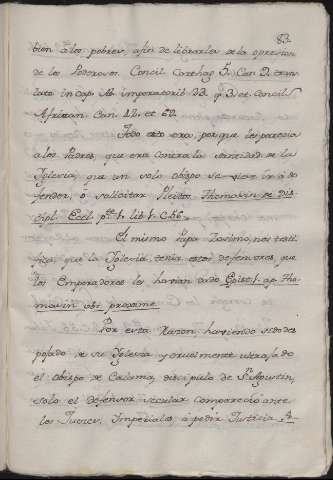 83.
bien á los pobres, afin de librarla de la opresion
de los Poderosos. Concil Carthag 5. Can 9. tras
lato in cap. ab imperatorib 23. q 3. et Concil
Affrican Can 42. et 62.
Todo esto era, por que les parecia
a los Padres, que era contra la seriedad de la
Iglesia, que un solo obispo se viese ir á de
fender, ó sollicitar Pleitos. Thomasin de Dis
cipl. Eccl. pte. 1. lib. 1. C. 56.
El mismo Papa Zosimo, nos testi
fica, que la Iglesia, tenia estos defensores, que
los Emperadores les havian dado. Epist. 1. ap. Tho
masin ubi proxime.
Por esta razon, haviendo sido des
pojado de su Iglesia y cruelmente ultrajado
el obispo de Calama, discipulo de Sn. Agustin,
solo el defensor secular comparecio ante
los Jueces, Imperiales á pedir Justicia. A-